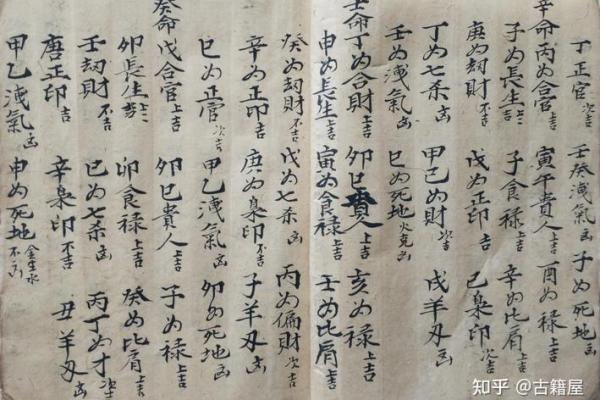 丁正官次吉 壬癸洩氣凶 子为死地凶
辛命丙为合官上吉 寅午貴人上吉 酉为禄上吉
子为長生上吉 子食禄上吉 辛为比肩上吉
庚为刼財不吉 戊为正印吉 己梟印次吉
丁为七杀凶 甲己为財次吉 戌羊刃凶
壬为洩氣凶 巳为死地火克凶
壬命丁为合財上吉 卯巳貴人上吉 亥为禄上吉
申为長生上吉 寅为食禄上吉 壬为比肩上吉
癸为刼財不吉 戊为七杀凶 丙为偏財次吉
辛为正印吉 庚为梟印不吉 子羊刃凶
巳为正官次吉 甲乙洩氣凶 卯为死地凶
癸命戊合官上吉 卯巳貴人上吉 子为禄上吉
卯長生上吉 卯食禄上吉 癸为比肩上吉
壬刼財不吉 巳为七杀凶 丙丁为才次吉
唐正印吉 辛梟印不吉 丑羊刃凶
甲乙洩氣凶 申为死地金生水不凶
知乎 @古籍屋